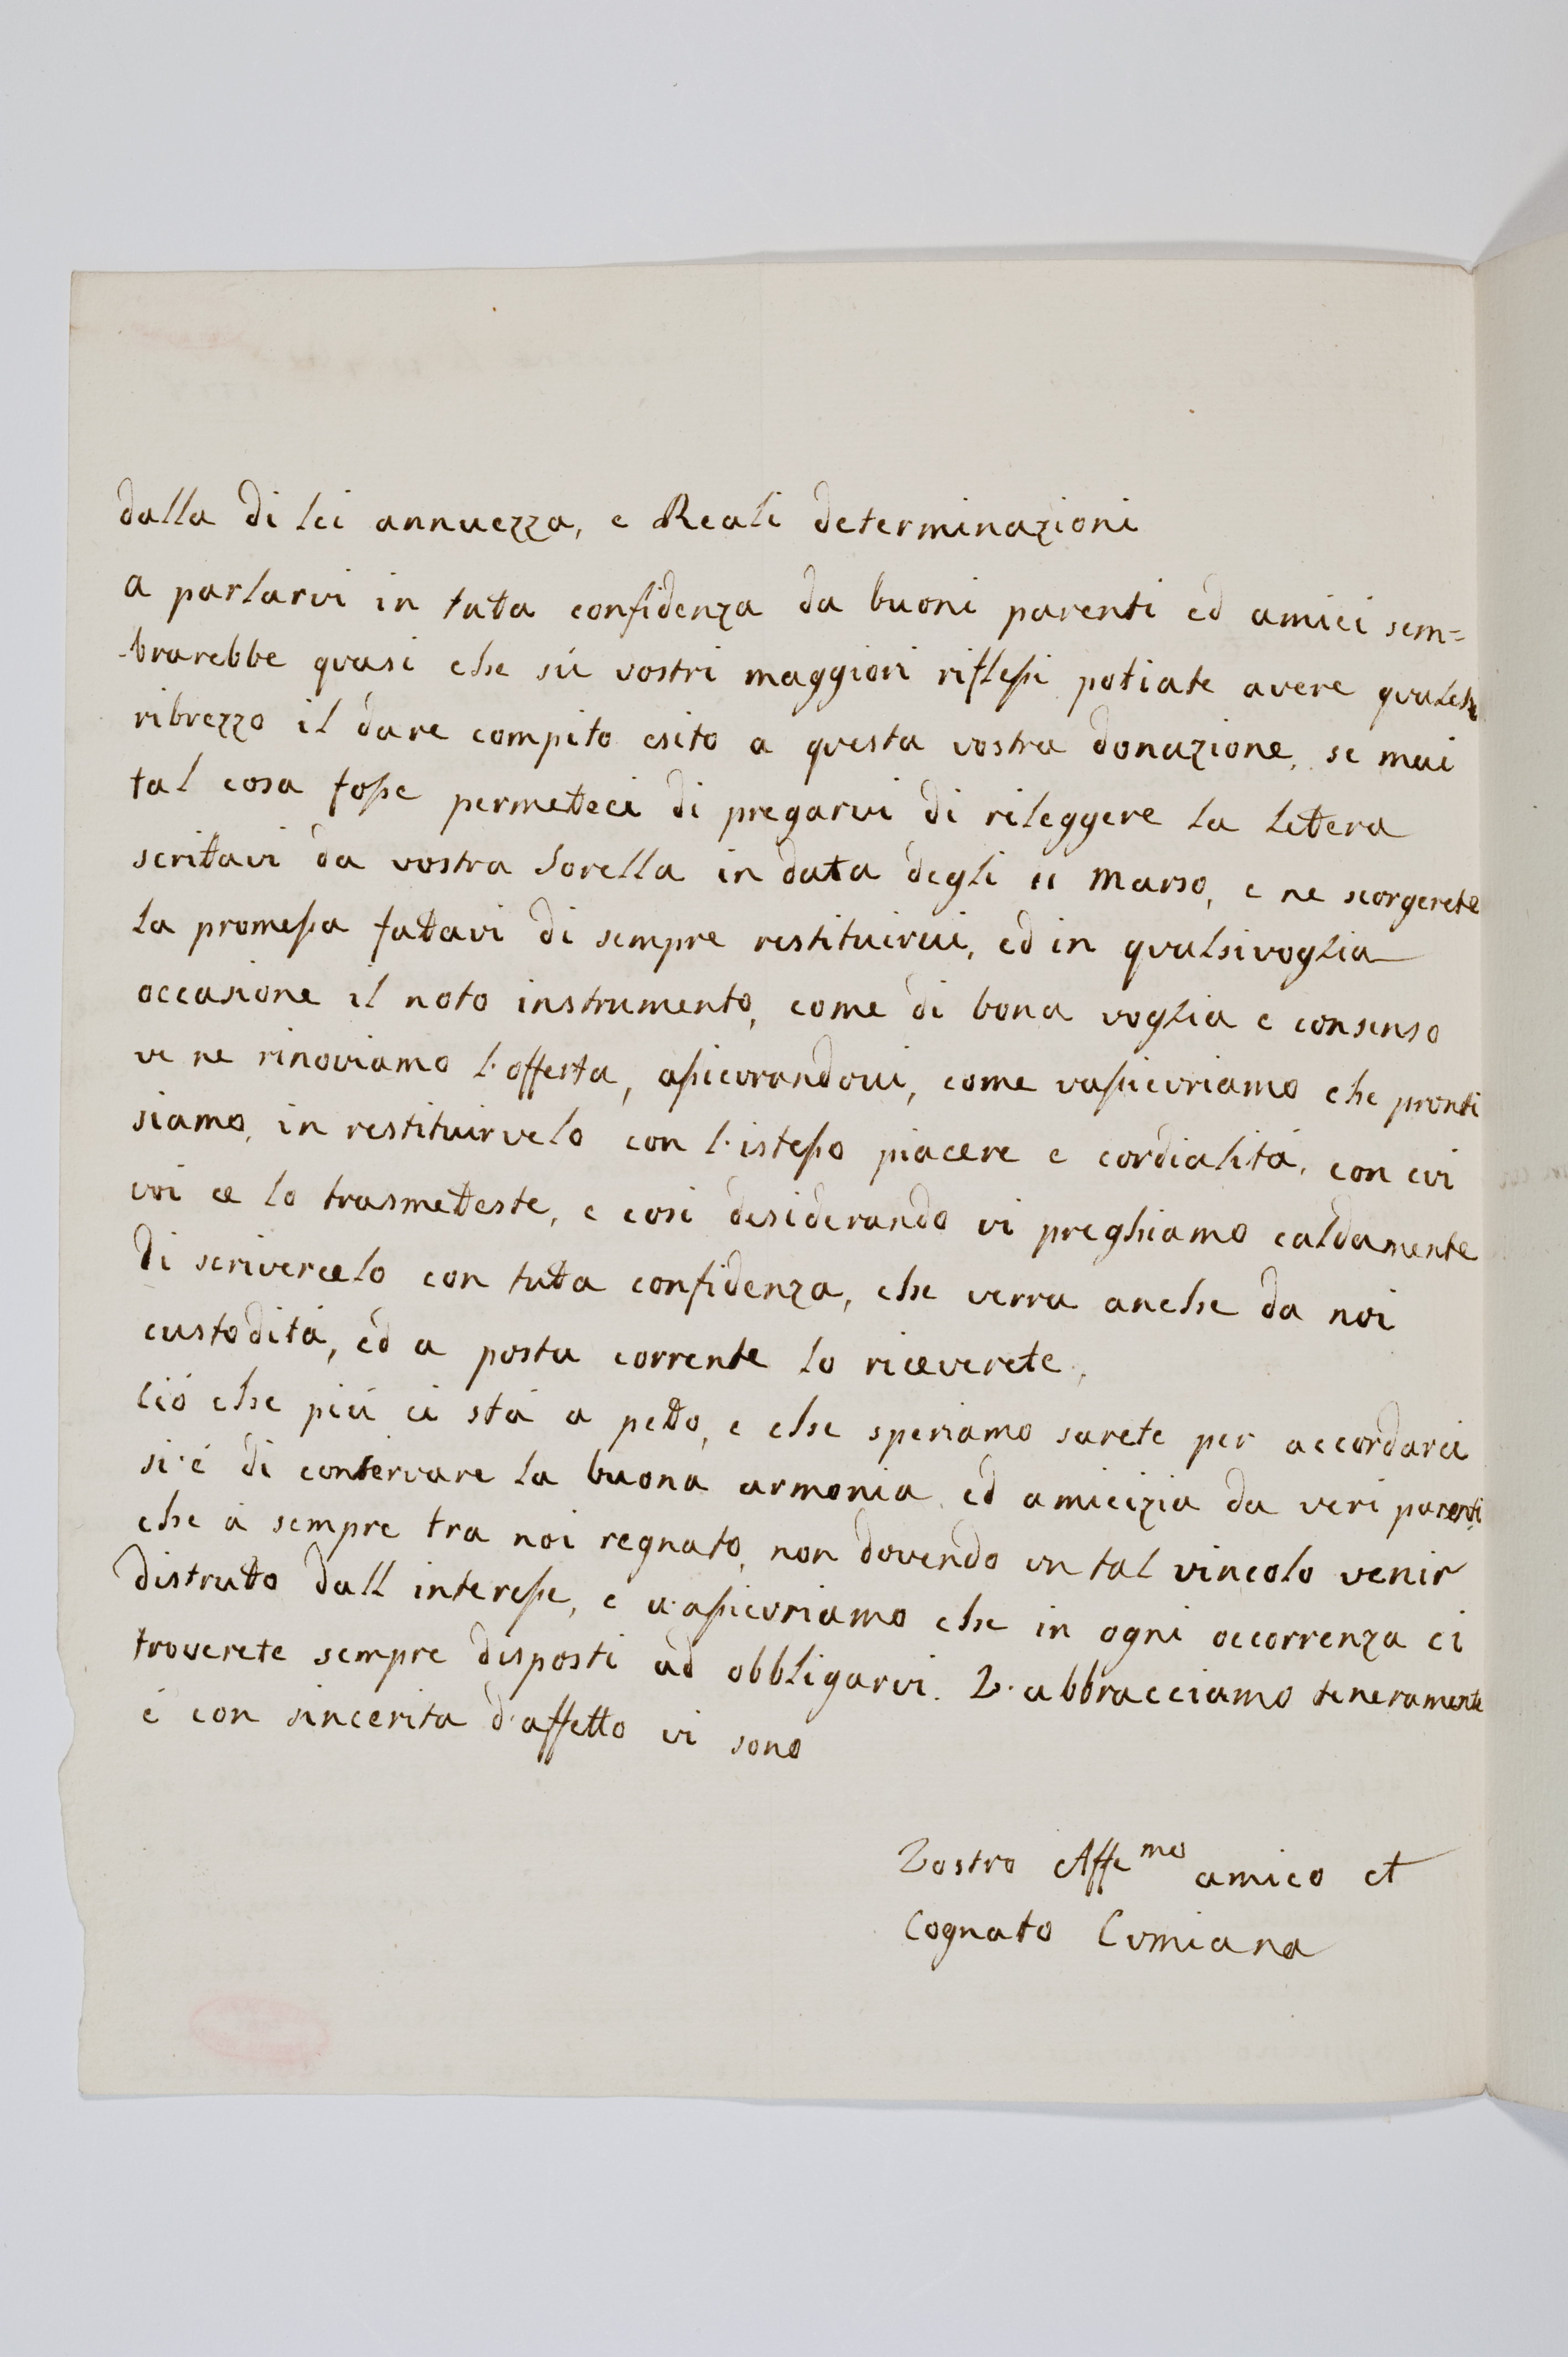 dalla di lei annuezza, e Reali determinazioni
a parlarvi in tutta confidenza da buoni parenti ed amici sem=
-brarebbe quasi che sù vostri maggiori riflessi potiate avere qualche
ribrezzo il dare compito esito a questa vostra donazione, se mai
tal cosa fosse permetteci di pregarvi di rileggere la lettera
scrittavi da vostra Sorella in data degli 11 Marso, e ne scorgerete
la promessa fattavi di sempre restituirvi, ed in qualsivoglia
occasione il noto instrumento, come di bona voglia e consenso
ve ne rinoviamo l'offerta, assicurandovi, come vassicuriamo che pronti
siamo, in restituirvelo con l'istesso piacere e cordialità, con cui
voi ce lo trasmetteste, e così desiderando vi preghiamo caldamente
di scrivercelo con tutta confidenza, che verra anche da noi
custodità, ed a posta corrente lo riceverete,
Ciò che più ci stà a petto, e che speriamo sarete per accordarci
si è di conservare la buona armonia, ed amicizia da veri parenti
che à sempre tra noi regnato, non dovendo un tal vincolo venir
distrutto dall interesse, e v'assicuriamo che in ogni occorrenza ci
troverete sempre disposti ad obbligarvi. V'abbracciamo teneramente
è con sincerita d'affetto vi sono
Vostro Affe^mo amico et
Cognato Cumiana